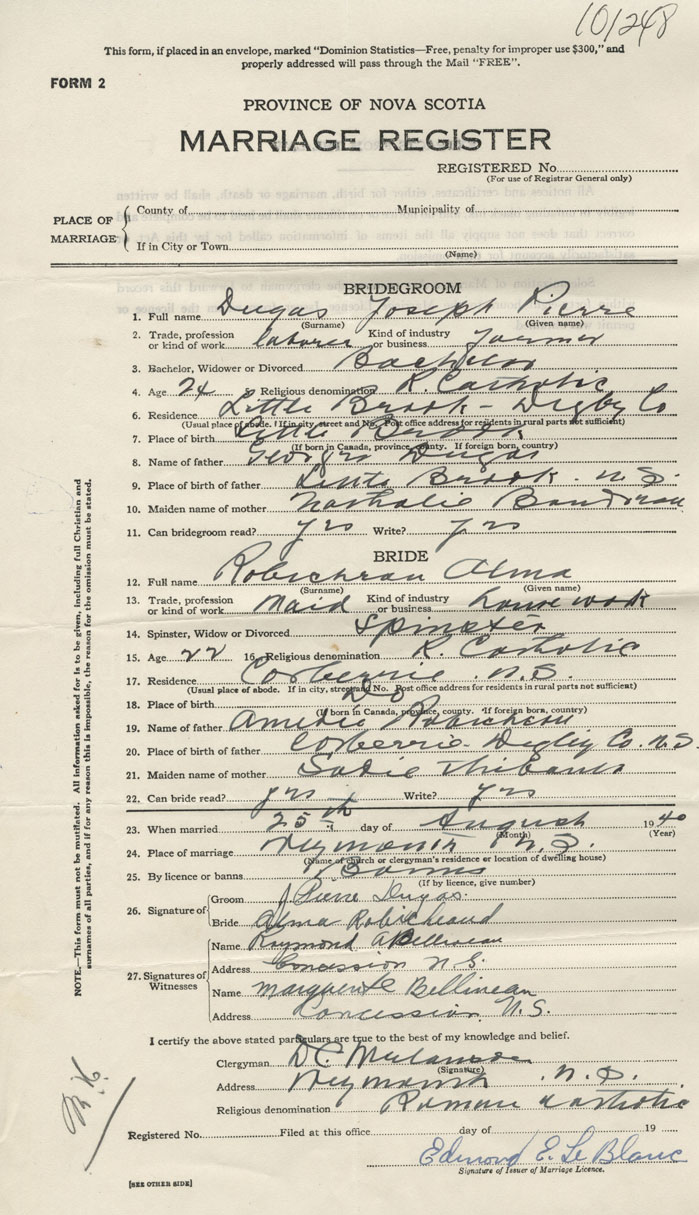 10/248
This form, if placed in an envelope, marked "Dominion Statistics—Free, penalty for improper use $300," and
properly addressed will pass through the Mail "FREE".
FORM 2
PROVINCE OF NOVA SCOTIA
MARRIAGE REGISTER
REGISTERED No.
(For use of Registrar General only)
PLACE OF MARRIAGE
County of Municipality of
If in City or Town
(Name)
BRIDEGROOM
1. Full name Dugas Joseph Pierre
(Surname) (Given name)
2. Trade, profession or kind of work laborer Kind of industry or business farmer
3. Bachelor, Widower or Divorced Bachelor
4. Age 24 5. Religious denomination R. Catholic
6. Residence Little Brook - Digby Co
(Usual place of abode. If in city, street and No. Post office address for residents in rural parts not sufficient)
7. Place of birth Little Brook
(If born in Canada, province, county. If foreign born, country)
8. Name of father Georges Dugas
9. Place of birth of father Little Brook. N.S.
10. Maiden name of mother Nathalie Boudreau
11. Can bridegroom read? yes Write? yes
BRIDE
12. Full name Robicheau Alma
(Surname) (Given name)
13. Trade, profession or kind of work Maid Kind of industry or business house work
14. Spinster, Widow or Divorced Spinster
15. Age 22 16. Religious denomination R. Catholic
17. Residence Corberrie. N.S.
(Usual place of abode. If in city, street and No. Post office address for residents in rural parts not sufficient)
18. Place of birth Do
(If born in Canada, province, county. If foreign born, country)
19. Name of father Amedie Robicheau
20. Place of birth of father Corberrie - Digby Co. N.S.
21. Maiden name of mother Sadie Thibault
22. Can bride read? yes Write? yes
23. When married 25th day of August 1940
(Month) (Year)
24. Place of marriage Weymouth N.S.
(Name of church or clergyman's residence or location of dwelling house)
25. By licence or banns Banns
(If by licence, give number)
26. Signature of
Groom J. Pierre Dugas.
Bride Alma Robicheaud
27. Signatures of Witnesses
Name Raymond A Bellineau
Address Concession N.S.
Name Marguerite Bellineau
Address Concession, N.S.
I certify the above stated particulars are true to the best of my knowledge and belief.
Clergyman D.C. Melanson
(Signature)
Address Weymouth. N.S.
Religious denomination Roman Catholic
Registered No. Filed at this office day of 19
Edmond E. Le Blanc
Signature of Issuer of Marriage Licence.
[SEE OTHER SIDE]
NOTE.—This form must not be mutilated. All information asked for is to be given, including full Christian and
surnames of all parties, and if for any reason this is impossible, the reason for the omission must be stated.